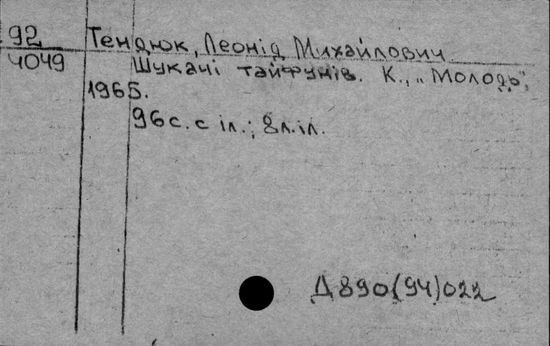 92 Тендюк, Леонід Михайлович
4049 Шукачі тайфунів. К., „Молодь",
1965.
96с. с іл.; 8л.іл.
Д890(94)022